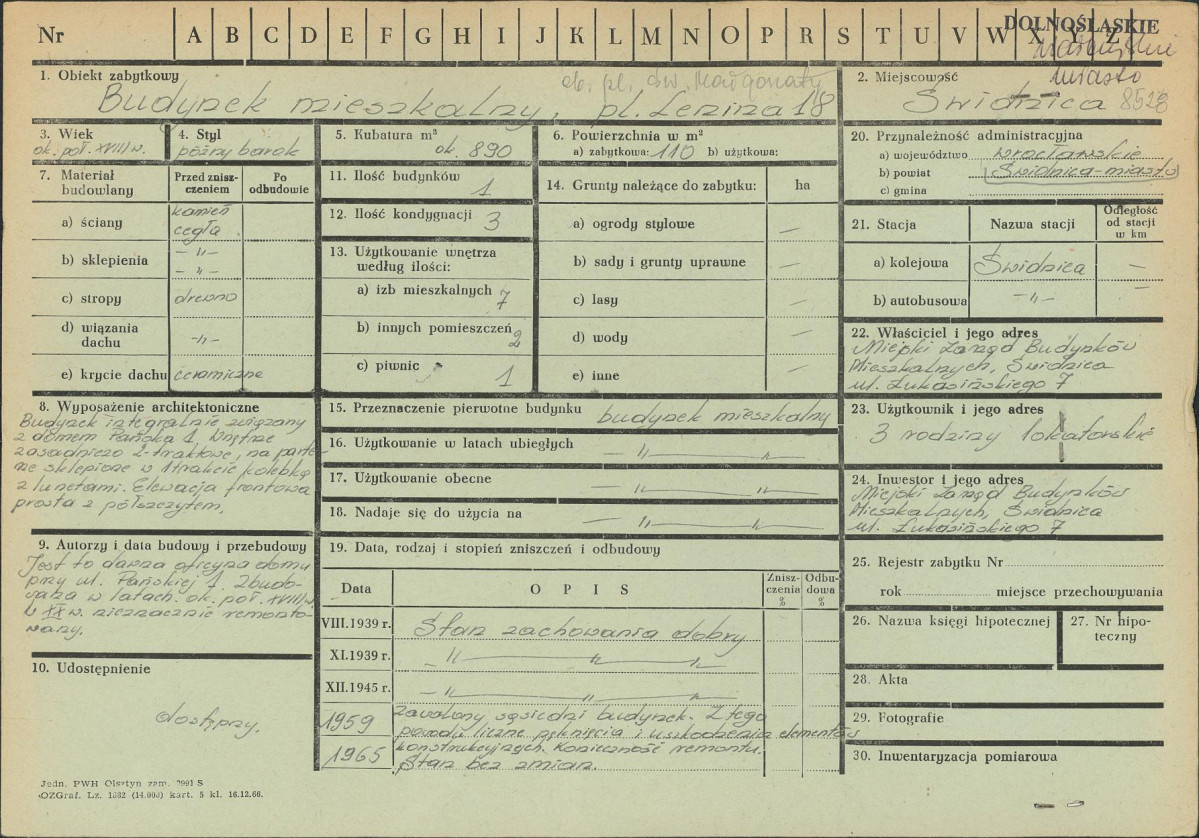 Nr A B C D E F G H I J K L M N O P R S T U V W X Y Z
DOLNOŚLĄSKIE
miasto
1. Obiekt zabytkowy
ob. pl. św. Małgorzaty
Budynek mieszkalny, pl. Lenina 18
2. Miejscowość
Świdnica 8528
3. Wiek
ok. poł. XVIII w.
4. Styl
późny barok
5. Kubatura m³
ok. 890
6. Powierzchnia w m²
a) zabytkowa: 110 b) użytkowa:
7. Materiał budowlany
Przed zniszczeniem
Po odbudowie
a) ściany
kamień
cegła
b) sklepienia
- " -
- " -
c) stropy drewno
d) wiązania dachu - " -
e) krycie dachu ceramiczne
8. Wyposażenie architektoniczne
Budynek integralnie związany
z domem Pańska 1, Wnętrze
zasadniczo 2-traktowe, na parte-
rze sklepione w 1 trakcie kolebką
z lunetami. Elewacja frontowa
prosta z półszczytem.
9. Autorzy i data budowy i przebudowy
Jest to dawna oficyna domu
przy ul. Pańskiej 1. Zbudo-
wana w latach. ok. poł. XVIII w.
W XX w. nieznacznie remonto-
wany.
10. Udostępnienie
dostępny.
11. Ilość budynków 1
12. Ilość kondygnacji 3
13. Użytkowanie wnętrza
według ilości:
a) izb mieszkalnych 7
b) innych pomieszczeń 2
c) piwnic 1
14. Grunty należące do zabytku: ha
a) ogrody stylowe —
b) sady i grunty uprawne —
c) lasy —
d) wody —
e) inne —
15. Przeznaczenie pierwotne budynku budynek mieszkalny
16. Użytkowanie w latach ubiegłych — " — " —
17. Użytkowanie obecne — " — " —
18. Nadaje się do użycia na — " — " —
19. Data, rodzaj i stopień zniszczeń i odbudowy
Data
OPIS
Zniszczenia %
Odbudowa %
VIII.1939 r. Stan zachowania dobry
XI.1939 r. - " — " — " —
XII.1945 r. - " — " — " —
1959 zawalony sąsiedni budynek. Z tego
powodu liczne pęknięcia i uszkodzenia elementów
konstrukcyjnych. Konieczność remontu.
1965 Stan bez zmian.
20. Przynależność administracyjna
a) województwo wrocławskie
b) powiat Świdnica-miasto
c) gmina
21. Stacja
Nazwa stacji
Odległość od stacji w km
a) kolejowa Świdnica —
b) autobusowa - " - —
22. Właściciel i jego adres
Miejski Zarząd Budynków
Mieszkalnych, Świdnica
ul. Łukasińskiego 7
23. Użytkownik i jego adres
3 rodziny lokatorskie
24. Inwestor i jego adres
Miejski Zarząd Budynków
Mieszkalnych, Świdnica
ul. Łukasińskiego 7
25. Rejestr zabytku Nr
rok miejsce przechowywania
26. Nazwa księgi hipotecznej
27. Nr hipoteczny
28. Akta
29. Fotografie
30. Inwentaryzacja pomiarowa
Jedn. PWH Olsztyn zam. 2991 S
OZGraf. Lz. 1882 (14.000) kart. 5 kl. 16.12.66.